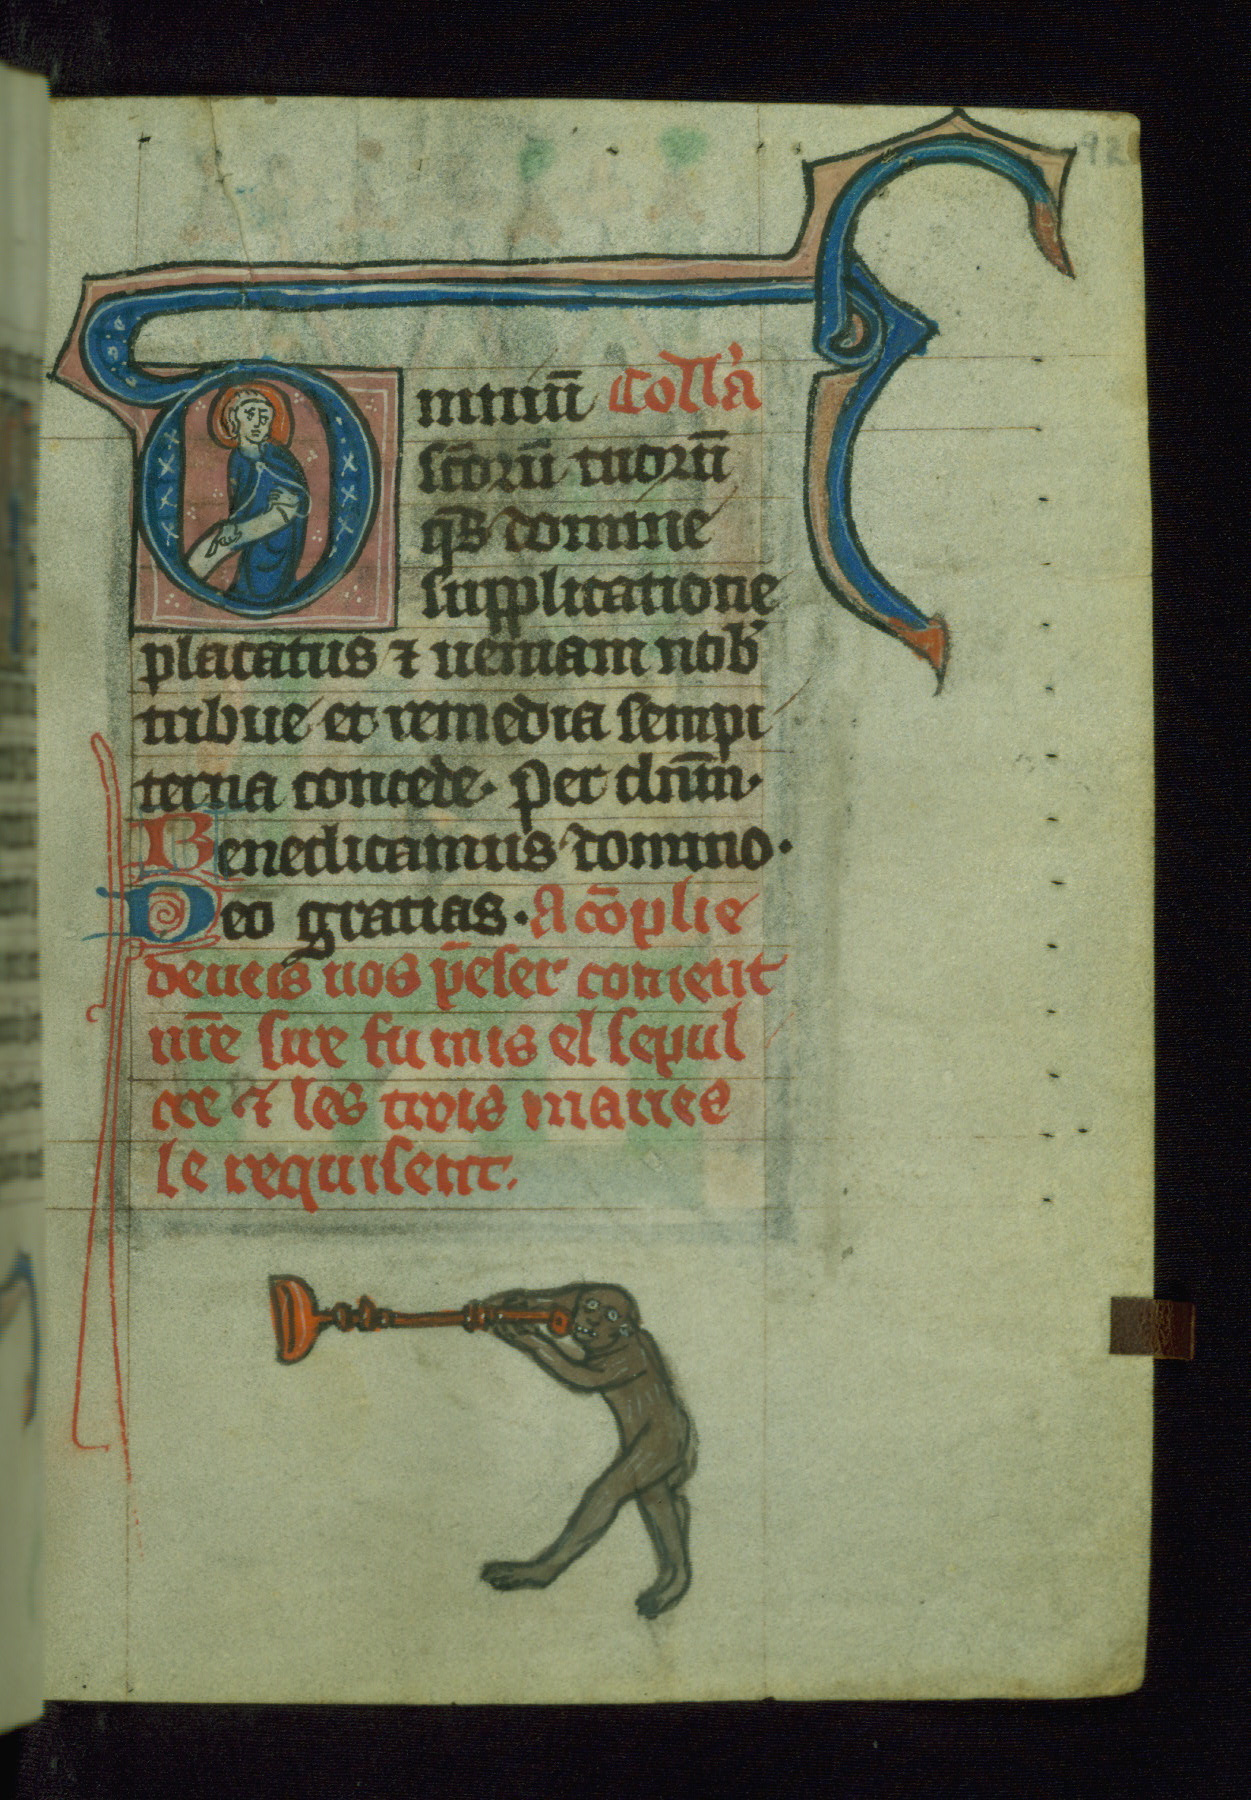 92
Omniū Coll'a
sc̄orū tuorū
qs̄ domine
supplicatione
placatus ⁊ ueniam nob'
tribue et remedia sempi
terna concede. Per dn̄m.
Benedicamus domino.
Deo gratias. A cō̄plie
deueis uos p̄eser coment
nr̄e sire fu mis el sepul
cre ⁊ les trois maries
le requisent.